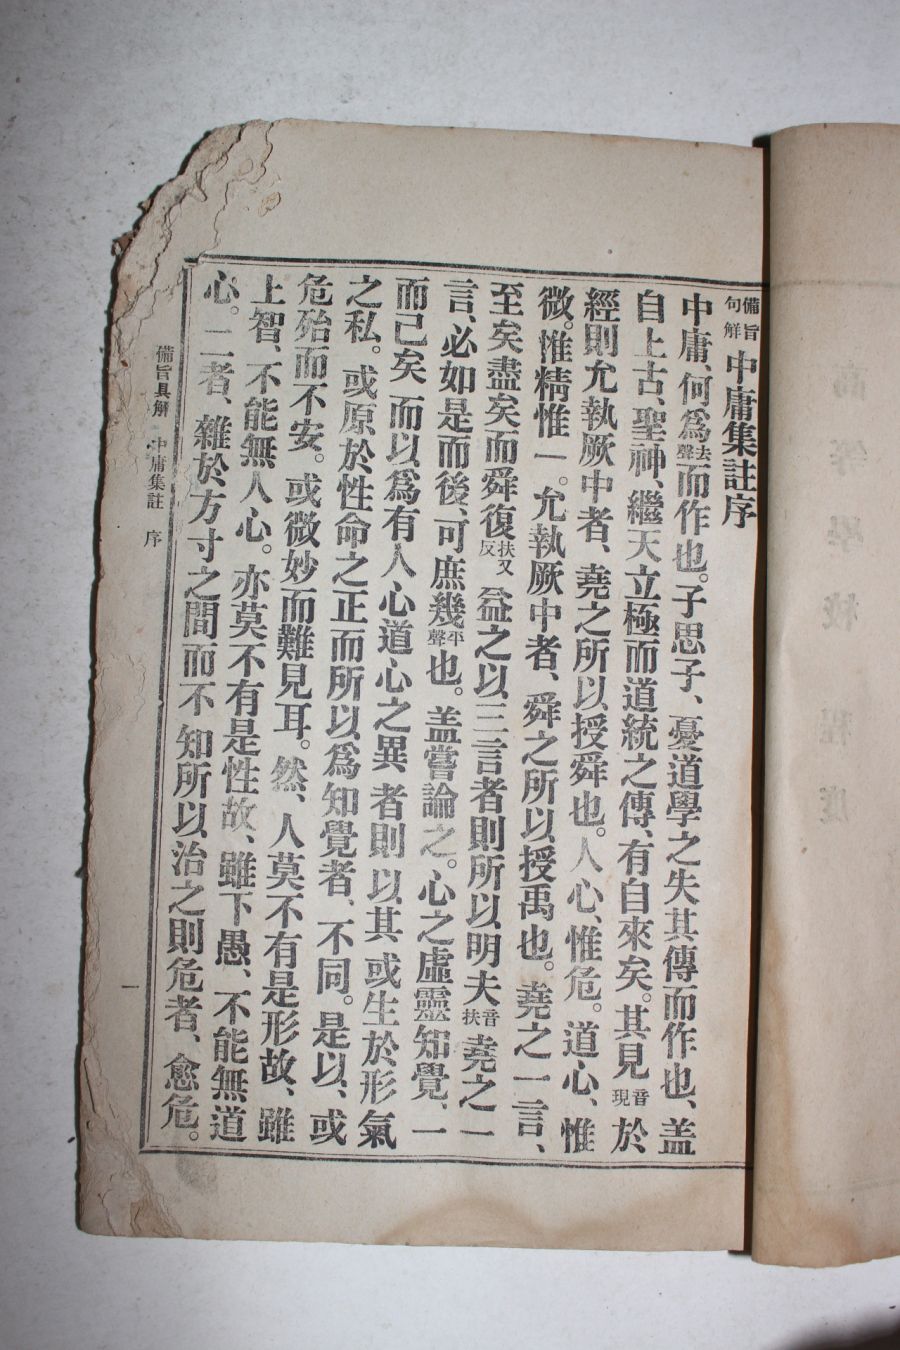 備旨句解 中庸集註序
中庸、何爲去聲而作也。子思子、憂道學之失其傳而作也、盖
自上古、聖神、繼天立極而道統之傳、有自來矣。其見音現於
經則允執厥中者、堯之所以授舜也。人心、惟危。道心、惟
微。惟精惟一。允執厥中者、舜之所以授禹也。堯之一言、
至矣盡矣而舜復扶又反益之以三言者則所以明夫音扶堯之一
言、必如是而後、可庶幾平聲也。盖嘗論之。心之虛靈知覺、一
而已矣而以爲有人心道心之異者則以其或生於形氣
之私。或原於性命之正而所以爲知覺者、不同。是以、或
危殆而不安。或微妙而難見耳。然、人莫不有是形故、雖
上智、不能無人心。亦莫不有是性故、雖下愚、不能無道
心。二者、雜於方寸之間而不知所以治之則危者、愈危。
備旨具解 中庸集註 序 一
高等學校程度